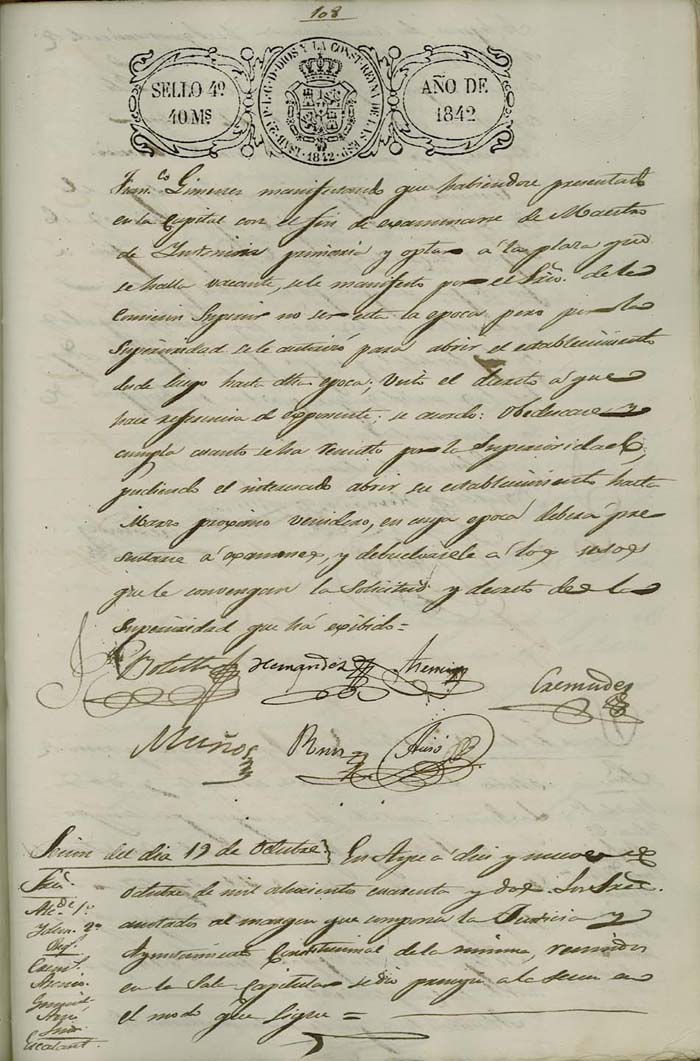 108
SELLO 4º
40 Ms
ISAB. 2ª P. L. G. D. DIOS Y LA CONST. REYNA DE LAS ESP.
1842
AÑO DE
1842
Fran.co Gimenez manifestando que habiendose presentado
en la Capital con el fin de examinarse de Maestro
de primaria y optar a la plaza que
se halla vacante, se le manifesto por el Srio. de la
Comision Superior no ser esta la epoca pero por la
Superioridad se le autorizó para abrir el establecimiento
desde luego hasta dha epoca; visto el decreto a que
hace referencia el exponente se acordo: Obedezcase y
cumpla cuanto se ha resuelto por la Superioridad,
pudiendo el interesado abrir su establecimiento hasta
Marzo proximo venidero, en cuya epoca deberá pre
sentarse á examenes, y debuelvasele a los usos
que le convengan la Solicitud y decreto de la
Superioridad que há exibido =
Botella Hernandez
Muños Ruiz
Secion del dia 19 de Octubre
En á diez y nueve de
Octubre de mil ochocientos cuarenta y dos: Los Sres.
anotados al margen que componen la Justicia y
Ayuntamiento Constitucional de la misma, reunidos
en la Sala Capitular se dio principio a la secion en
el modo que sigue =
Alc.de 1º